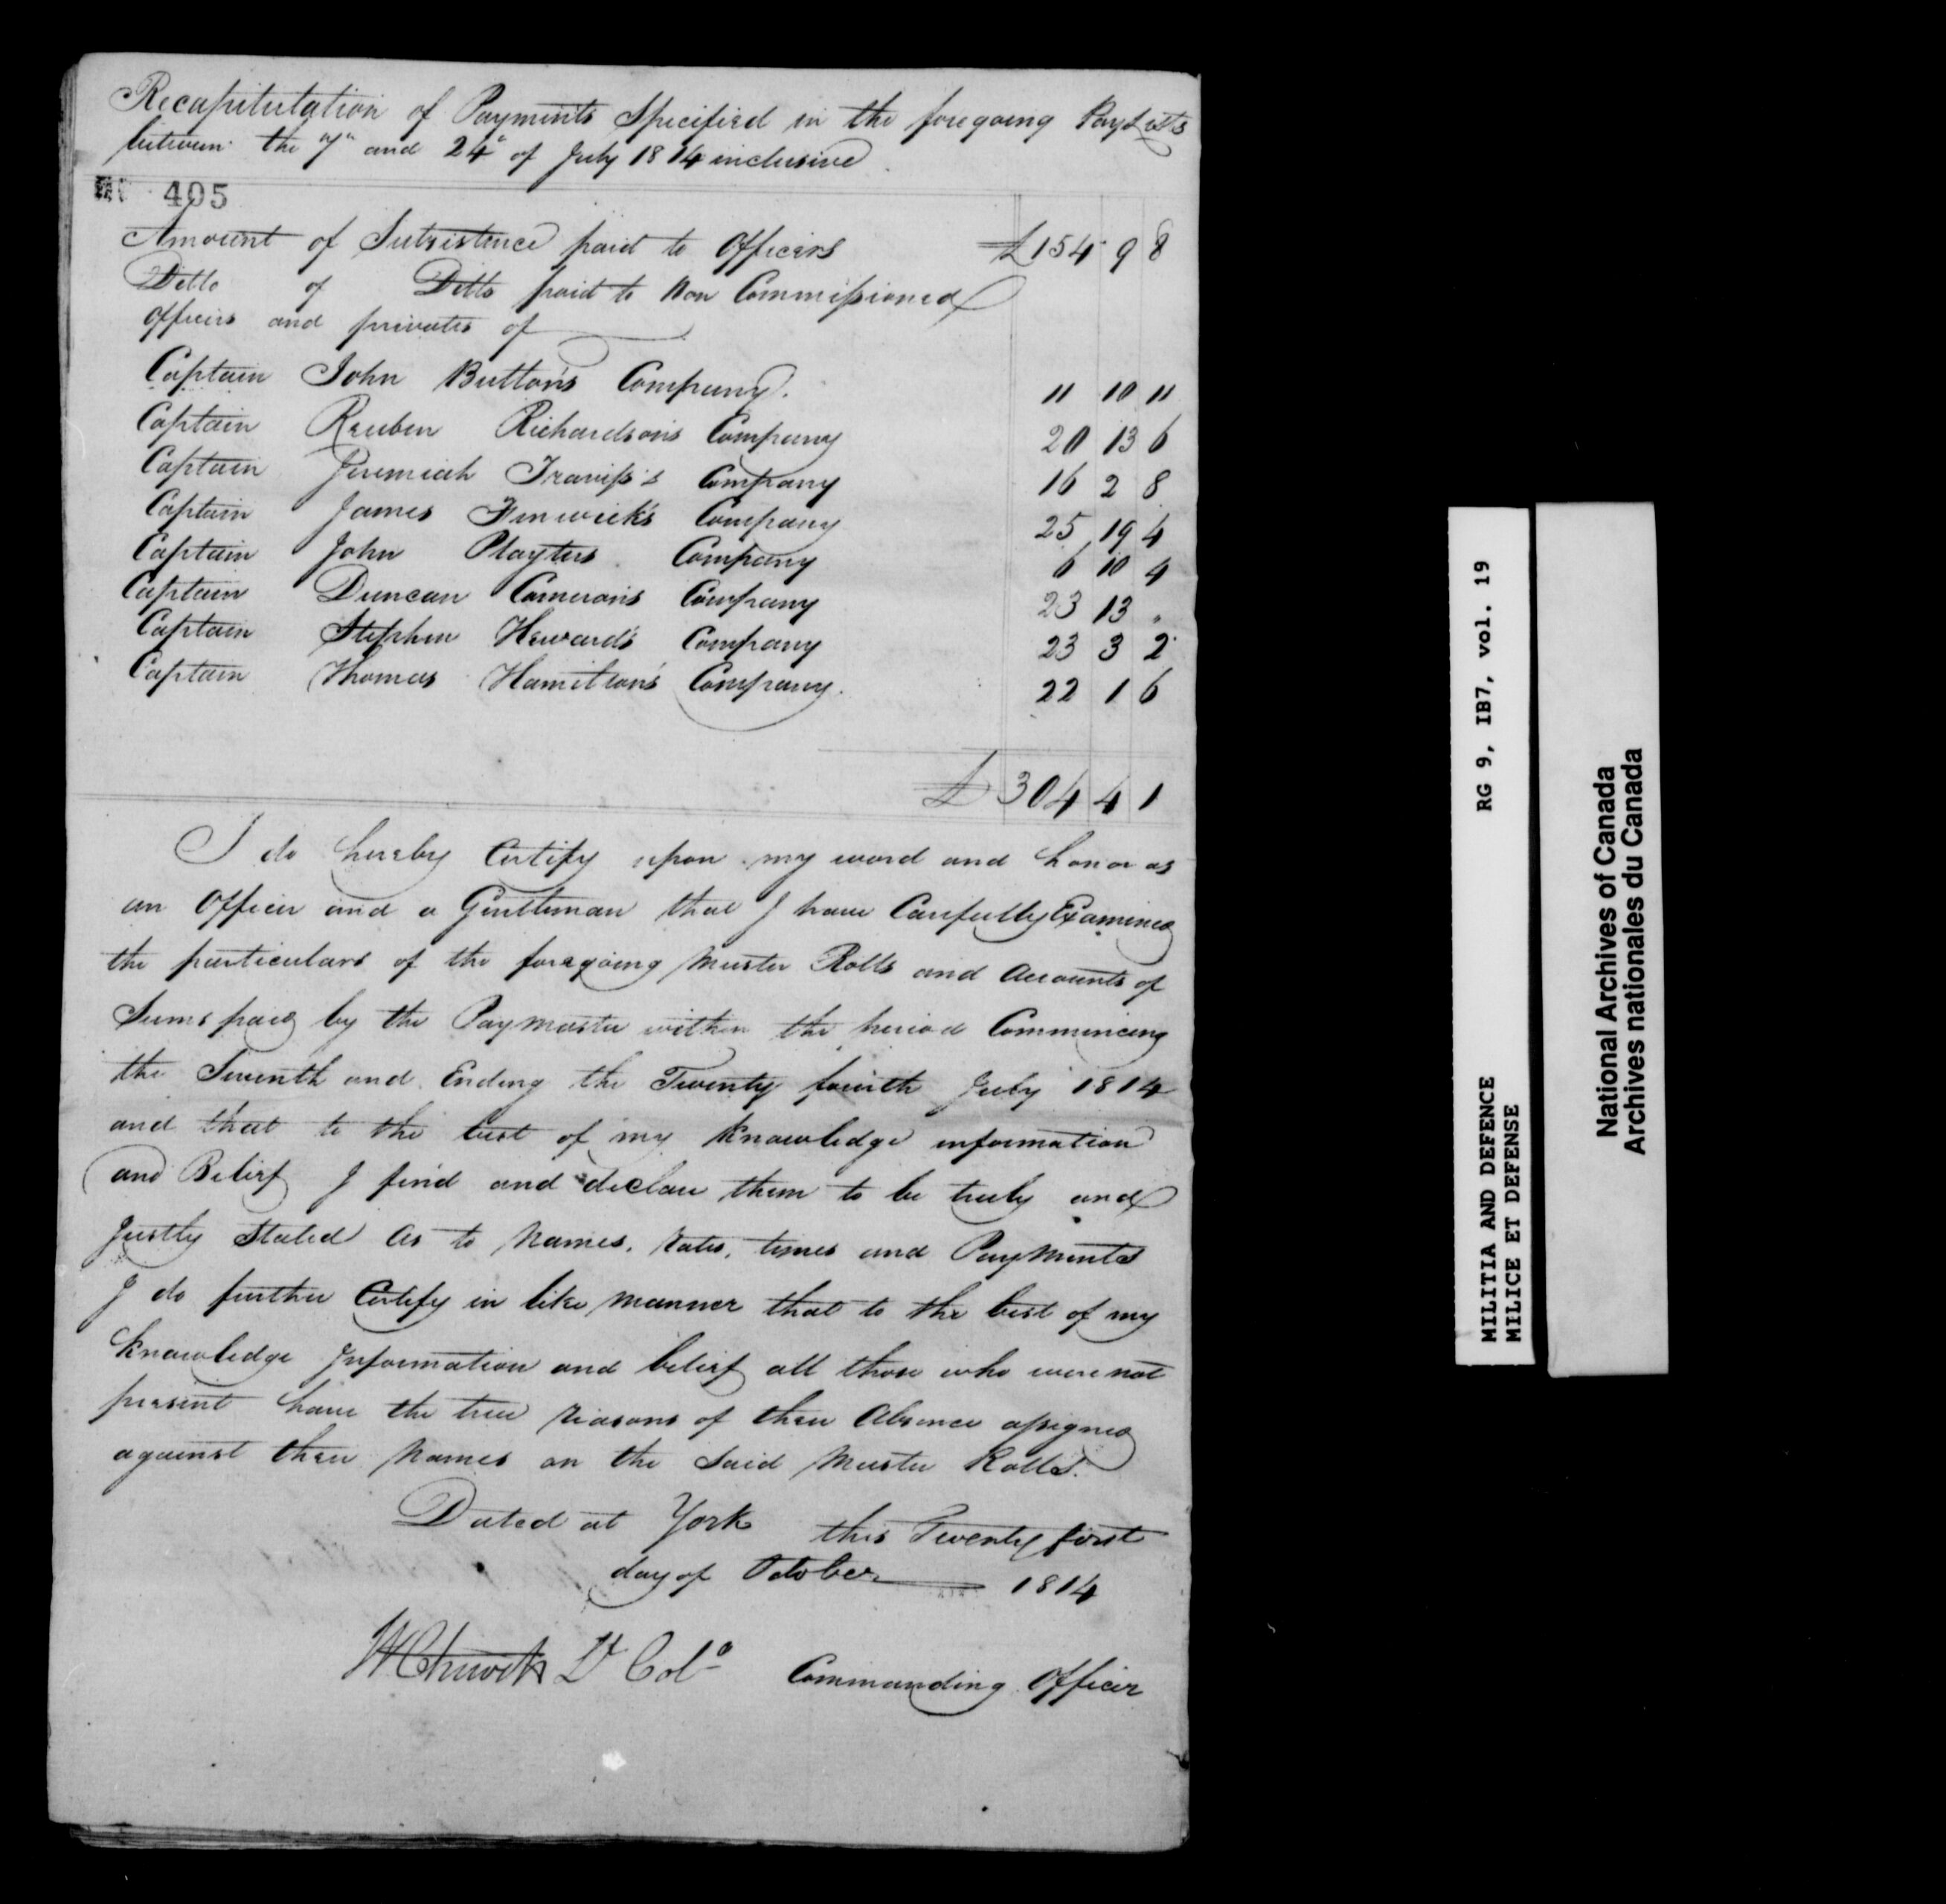 Recapitulation of Payments Specified in the foregoing Pay Lists
between the 7th and 24th of July 1814 inclusive
405
Amount of Subsistence paid to Officers £154 9 8
Ditto of Ditto paid to Non Commissioned
Officers and privates of
Captain John Button's Company. 11 10 11
Captain Reuben Richardson's Company 20 13 6
Captain Jeremiah Traviss's Company 16 2 8
Captain James Fenwick's Company 25 19 4
Captain John Playters Company 6 10 4
Captain Duncan Cameron's Company 23 13 "
Captain Stephen Heward's Company 23 3 2
Captain Thomas Hamilton's Company. 22 1 6
£ 304 4 1
I do hereby Certify upon my word and honor as
an Officer and a Gentleman that I have Carefully Examined
the particulars of the foregoing Muster Rolls and Accounts of
Sums paid by the Paymaster within the period Commencing
the Seventh and Ending the Twenty fourth July 1814
and that to the best of my Knowledge information
and Belief I find and declare them to be truly and
Justly Stated as to Names, Rates, times and Payments
I do further Certify in like manner that to the best of my
Knowledge Information and belief all those who were not
present have the true Reasons of their Absence assigned
against their Names on the Said Muster Rolls.
Dated at York this Twenty first
day of October 1814
W Chewett Lt Colo Commanding Officer
MILITIA AND DEFENCE RG 9, IB7, vol. 19
MILICE ET DEFENSE
National Archives of Canada
Archives nationales du Canada